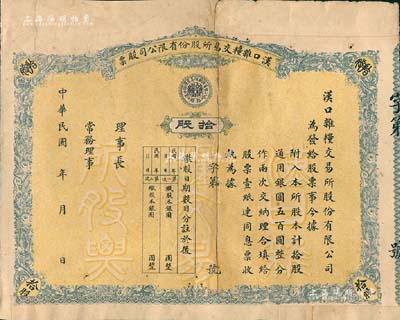 漢口雜糧交易所股份有限公司股票
拾股
漢口雜糧交易所股份有限公司
為發給股票事今據
附入本所股本計拾股
通用銀圓五百圓整分
作兩次交納理合填給
股票壹紙連同息票收
執為據
字第 號
繳股日期數目分註於後
繳股本銀圓 圓整
繳股本銀圓 圓整
理事長
常務理事
中華民國 年 月 日
字第 號